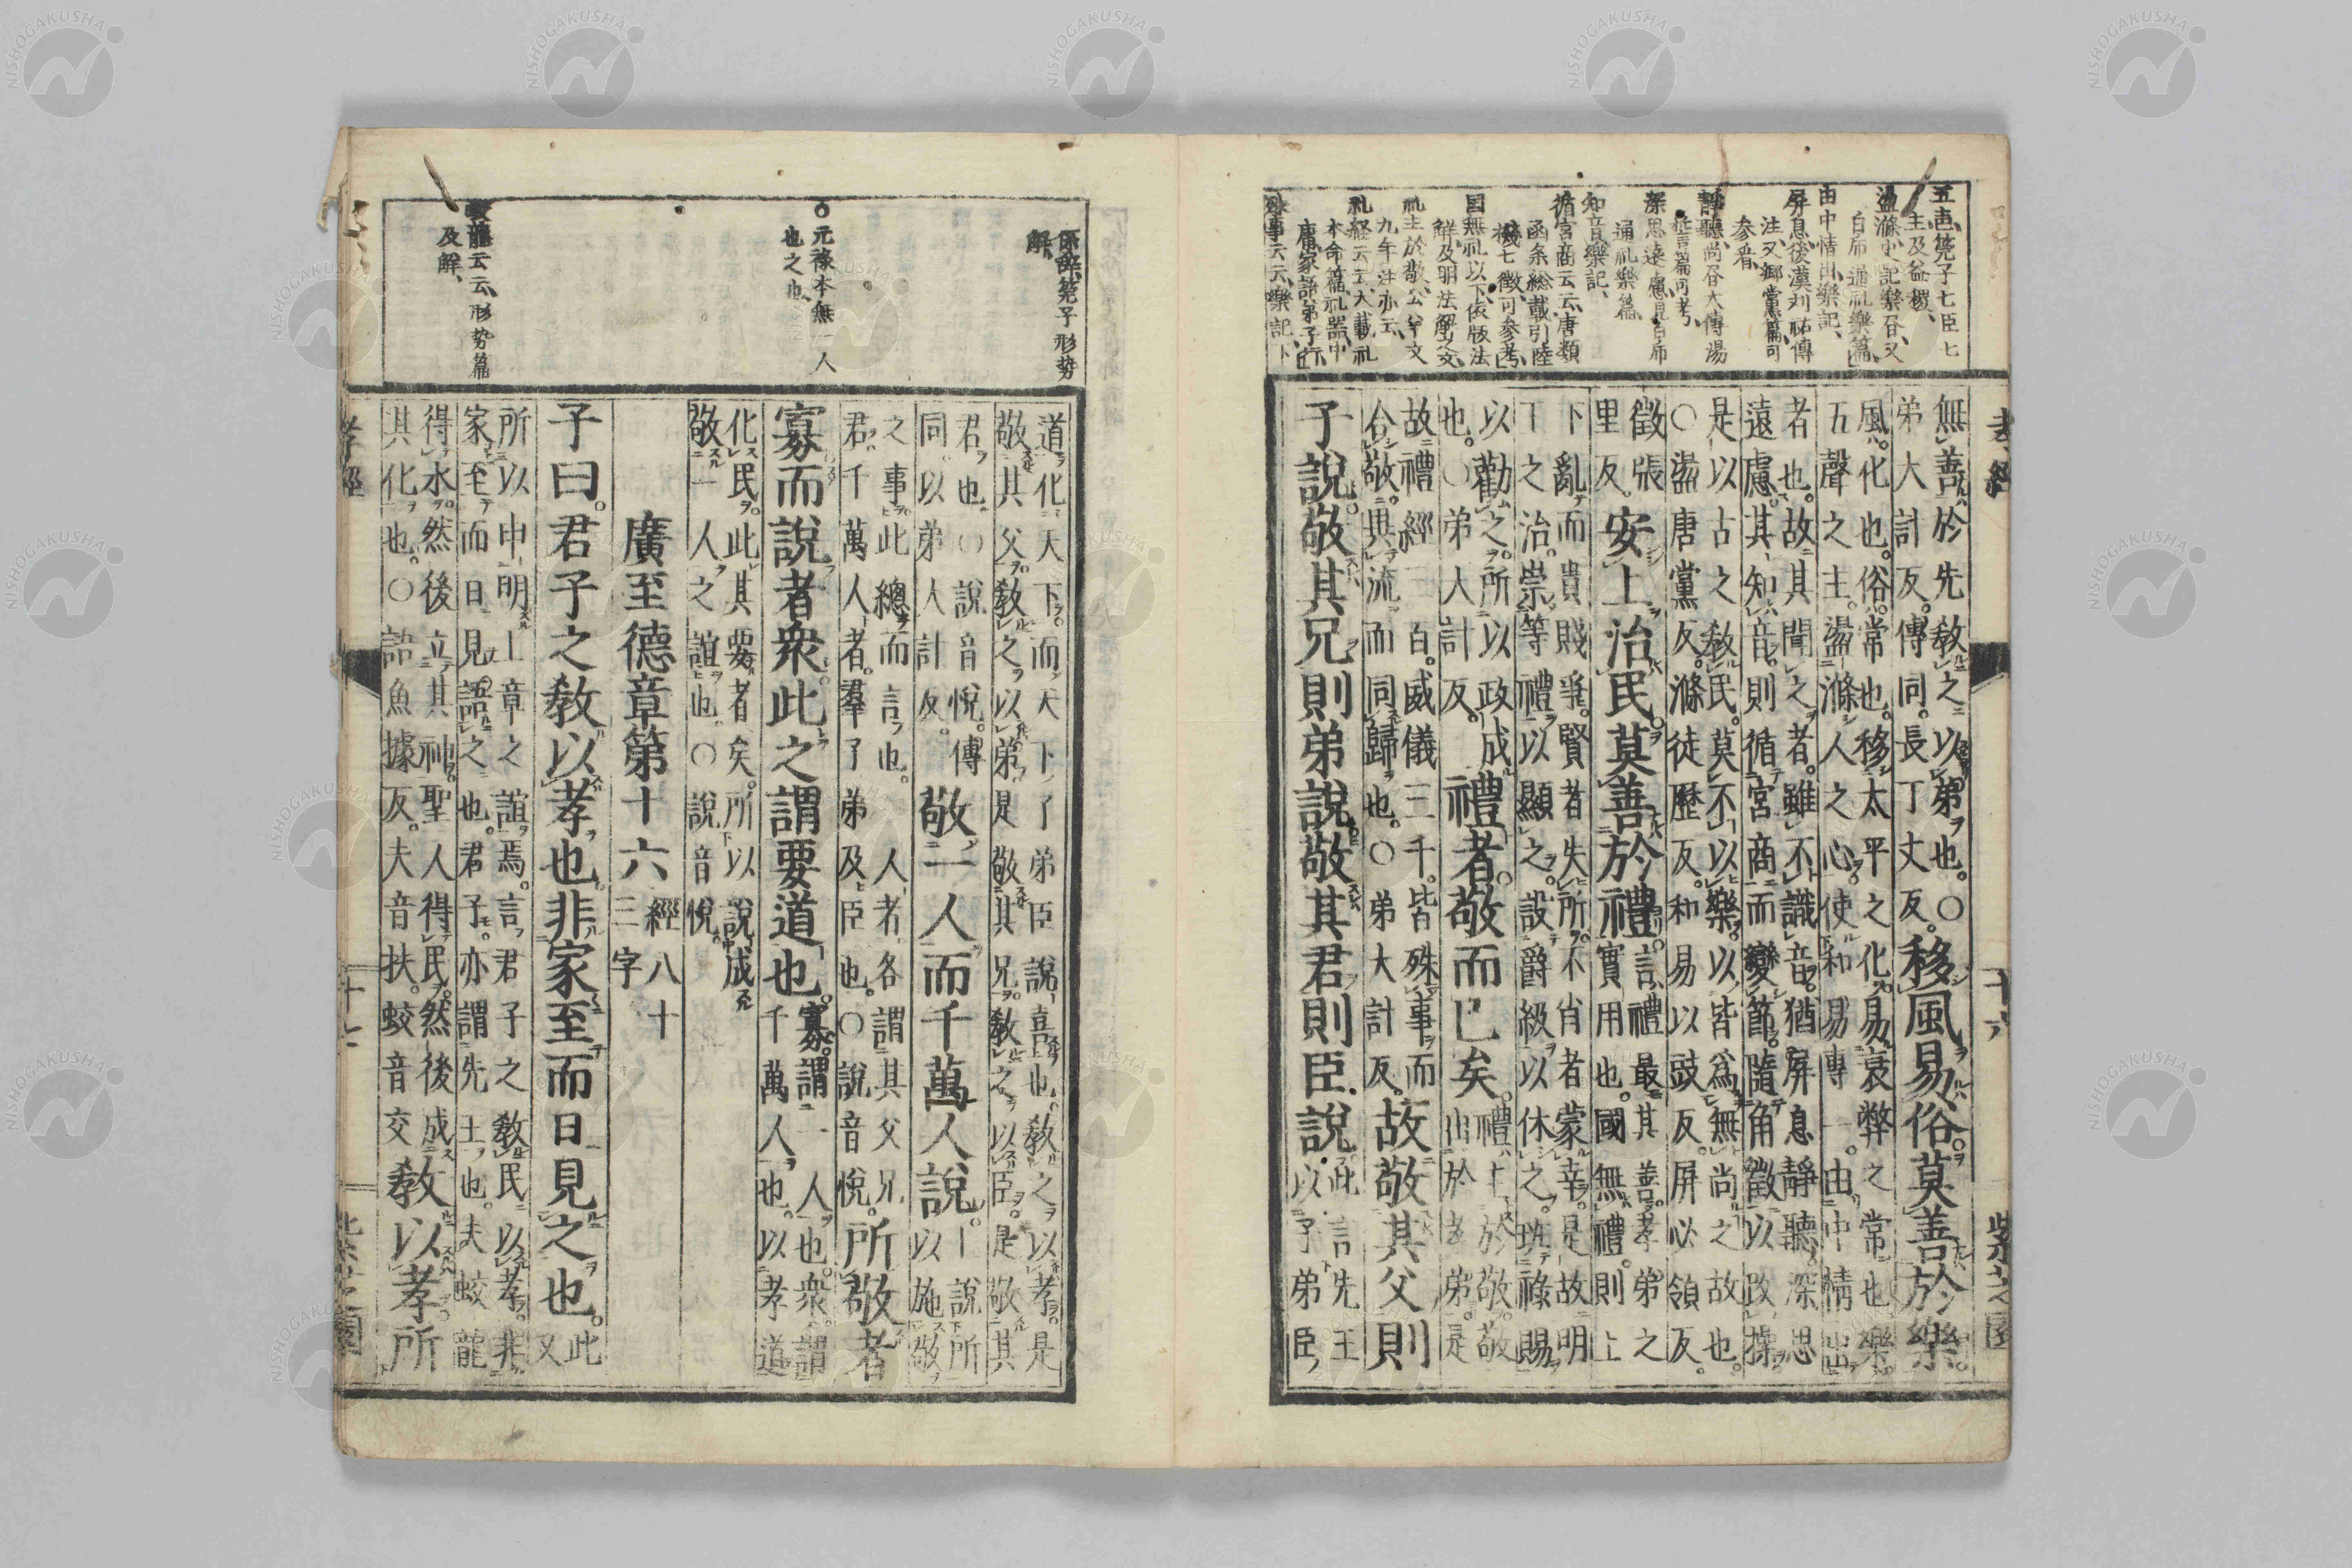 五声、筦子七臣七
主及益稷、
盪滌、史記樂各、又
白帍通礼樂篇、
由中情出、樂記、
屏息、後漢刘祐傳
注、又郷黨篇可
参看、
静聽、尚各大傳湯
誓篇可考、
深思遠慮見白帍
通礼樂篇、
知音、樂記、
循宮商云云、唐類
函条総載引陸
機七徴、可参考、
国無礼以下依版法
解及明法解交、
礼主於敬、公羊文
九年注亦云、
礼経云云、大戴礼
本命篇、礼器、中
庸、家語弟子行、
殊事云云、樂記、
孝經 十六 紫芝園
無善於先敎之以弟也。○
弟大計反。傳同。長丁丈反。
移風易俗。莫善於樂。
風。化也。俗。常也。移太平之化。易衰弊之常也。樂
五聲之主。盪滌人之心。使和易專一。由中情出
者也。故其聞之者。雖不識音。猶屏息靜聽。深思
遠慮。其知音。則循宮商而變節。隨角徵以改操。
是以古之敎民。莫不以樂。以皆爲無尚之故也。
○盪唐黨反。滌徒歷反。和易以豉反。屏必領反。
徵張
里反。
安上治民。莫善於禮。
言禮最其善。孝弟之
實用也。國無禮。則上
下亂而貴賤爭。賢者失所。不肖者蒙幸。是故明
王之治。崇等禮以顯之。設爵級以休之。班祿賜
以勸之。所以政成
也。○弟大計反。
禮者。敬而已矣。
禮主於敬。敬
出於孝弟。是
故禮經三百。威儀三千。皆殊事而
合敬。異流而同歸也。○弟大計反。
故敬其父則
子說。敬其兄則弟說。敬其君則臣說。
此言先王
以子弟臣
係辞、筦子形势
解、
○元禄本無一人
也之也、
蛟龍云云、形势篇
及解、
道化天下。而天下子弟臣說喜也。敎之以孝。是
敬其父。敎之以弟。是敬其兄。敎之以臣。是敬其
君也。○說音悅。傳
同。以弟大計反。
敬一人而千萬人說。
說所
以施敬
之事。此總而言也。一人者。各謂其父兄
君。千萬人者。羣子弟及臣也。○說音悅。
所敬者
寡而說者衆。此之謂要道也。
寡謂一人也。衆謂
千萬人也。以孝道
化民。此其要者矣。所以說成
敬一人之誼也。○說音悅。
廣至德章第十六
經八十
三字
子曰。君子之敎以孝也。非家至而日見之也。
此
又
所以申明上章之誼焉。言君子之敎民以孝。非
家至而日見語之也。君子。亦謂先王也。夫蛟龍
得水。然後立其神。聖人得民。然後成
其化也。○語魚據反。夫音扶。蛟音交
敎以孝所
孝經 十七 紫芝園